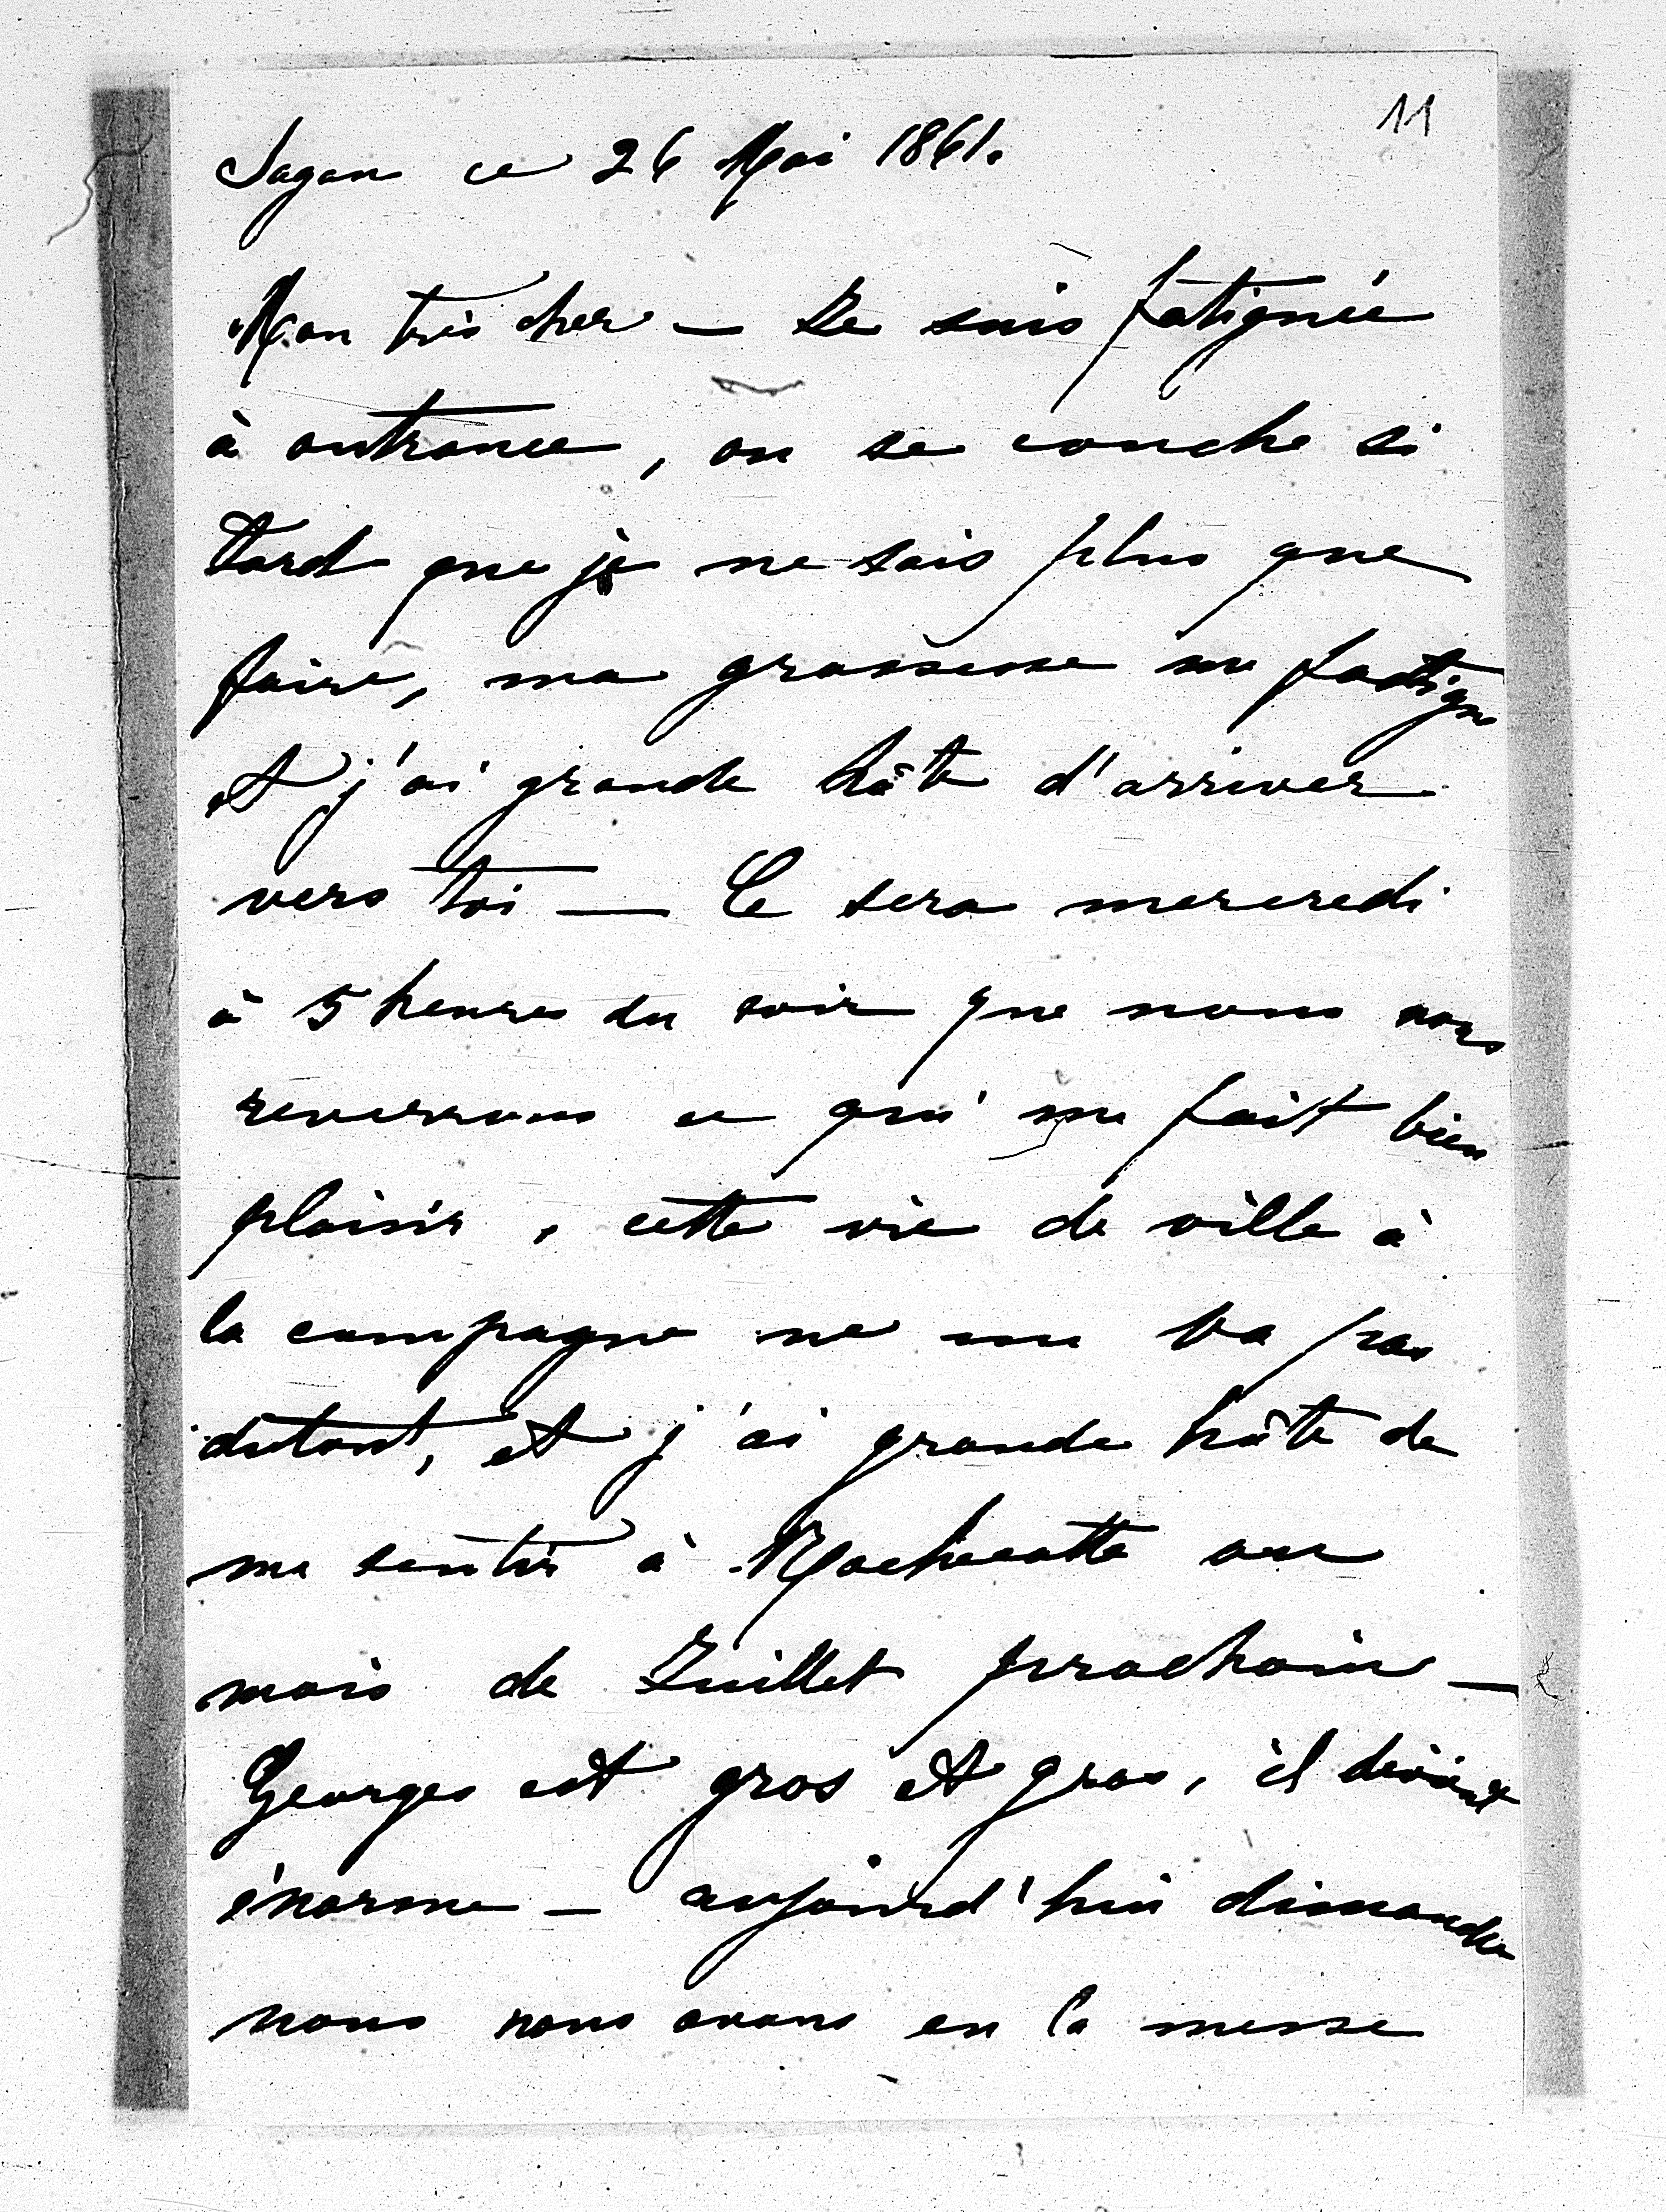 11
Sagan ce 26 Mai 1861.
Mon très cher — Je suis fatiguée
à outrance, on se couche si
tard que je ne sais plus que
faire, ma grossesse me fatigue
et j'ai grande hâte d'arriver
vers toi — Ce sera mercredi
à 5 heures du soir que nous nous
reverrons ce qui me fait bien
plaisir, cette vie de ville à
la campagne ne me va pas
dutout, et j'ai grande hâte de
me sentir à Rochecotte au
mois de Juillet prochain —
Georges est gros et gras, il devient
énorme — aujourd'hui dimanche
nous nous avons eu la messe